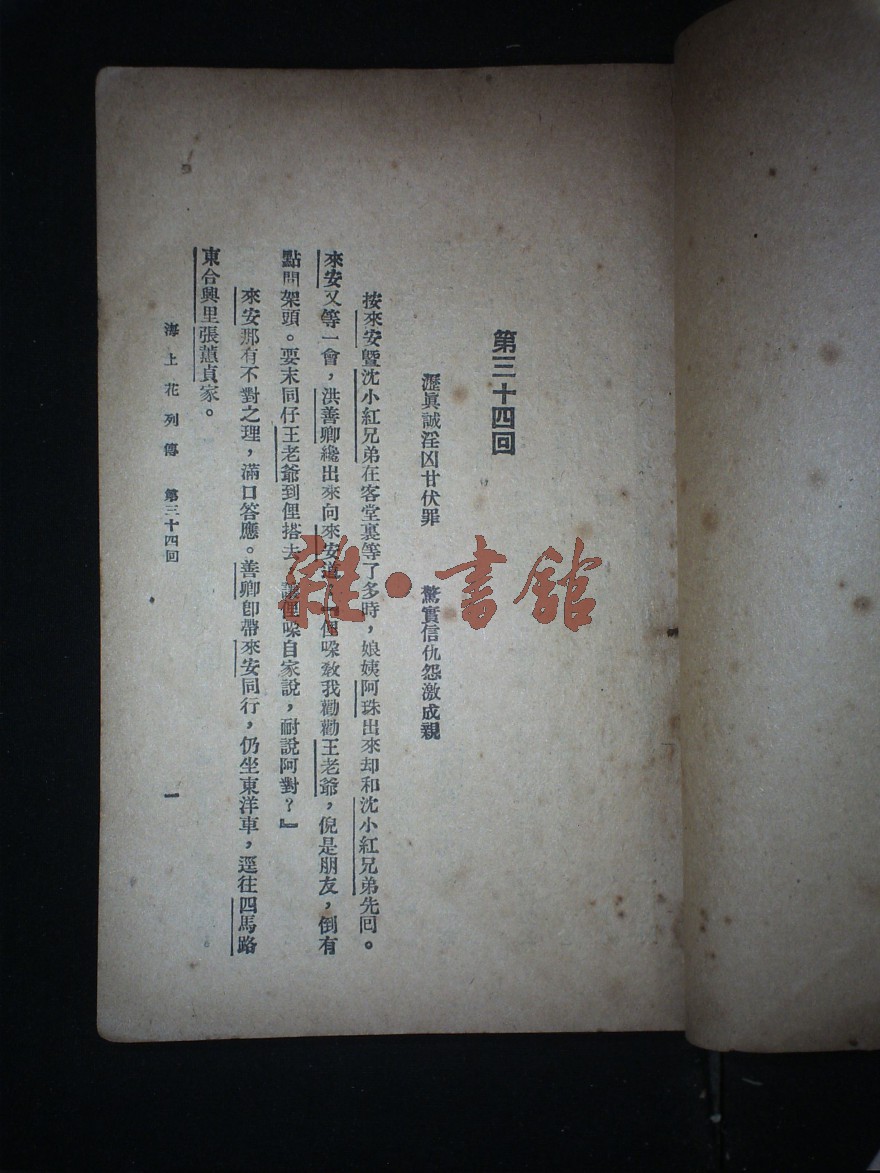 第三十四回
瀝眞誠淫凶甘伏罪　　驚實信仇怨激成親
按來安暨沈小紅兄弟在客堂裏等了多時，娘姨阿珠出來却和沈小紅兄弟先回。
來安又等一會，洪善卿纔出來向來安道：『俚哚敎我勸勸王老爺，倪是朋友，倒有
點間架頭。要末同仔王老爺到俚搭去，讓俚哚自家說，耐說阿對？』
來安那有不對之理，滿口答應。善卿卽帶來安同行，仍坐東洋車，逕往四馬路
東合興里張蕙貞家。
海上花列傳　第三十四回
一
雜·書館